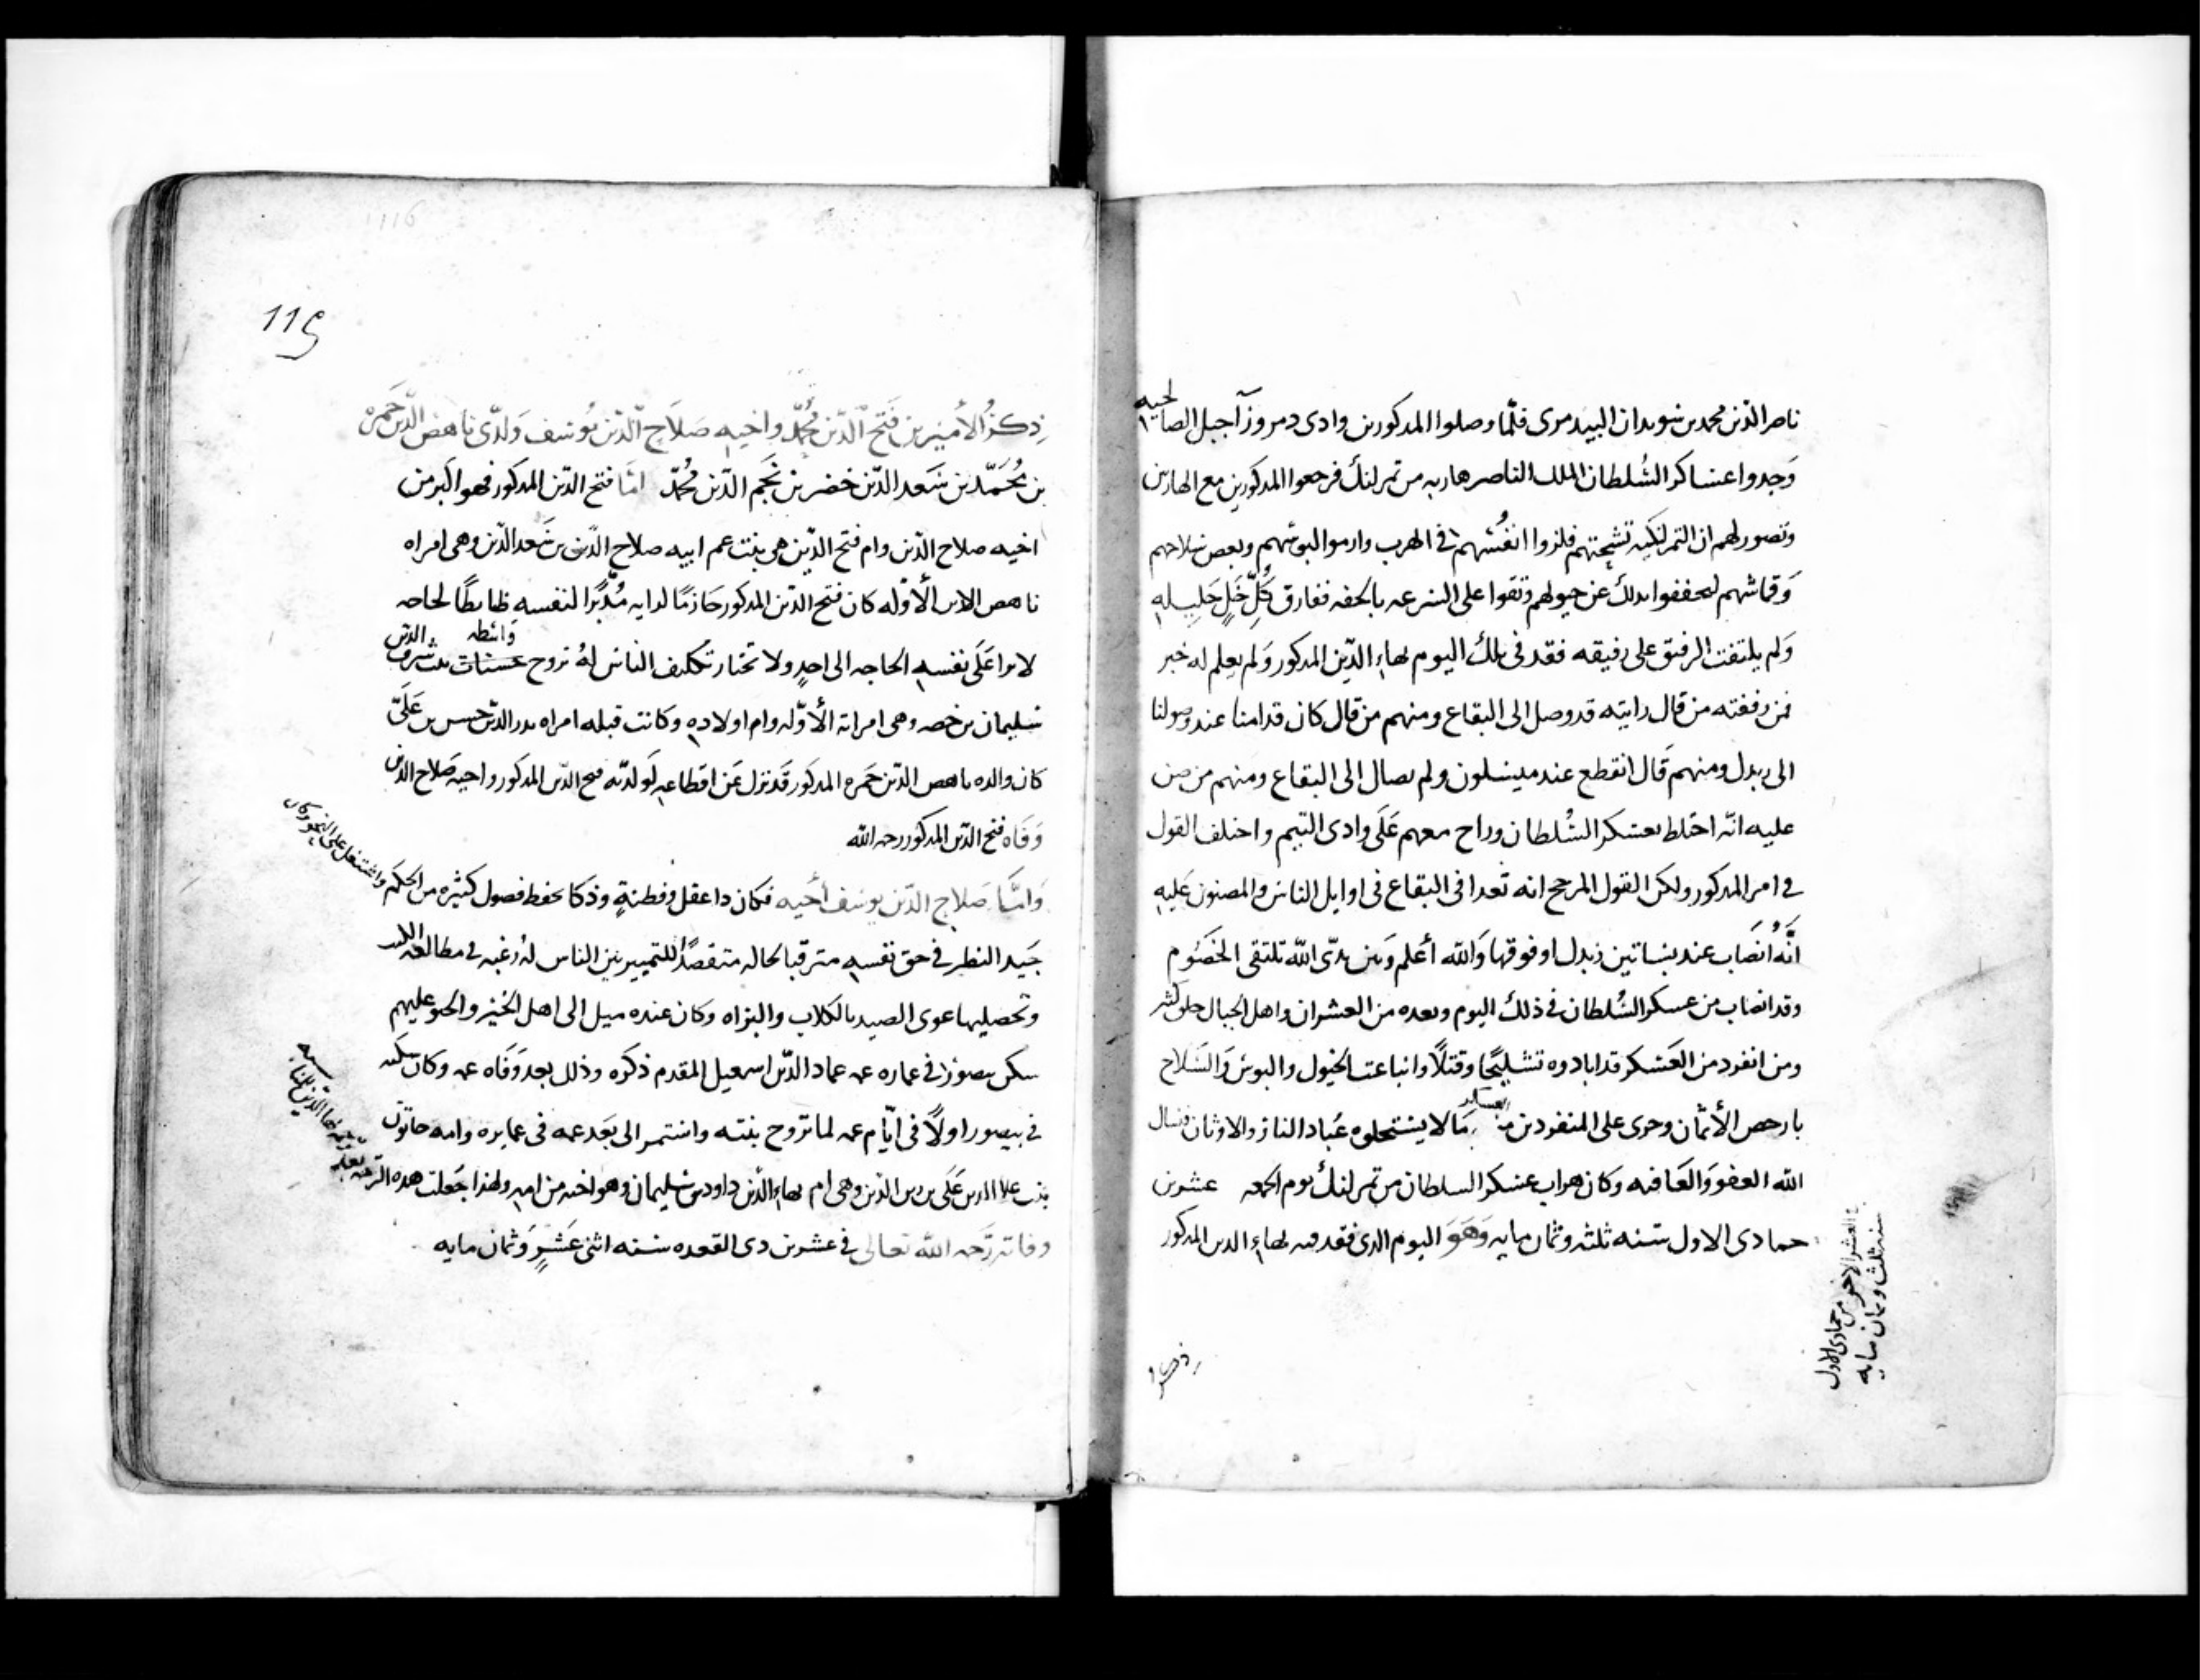 ناصر الدين محمد بن سويدان البيدمرى فلما وصلوا المدكورين وادى دمر وزآ جبل الصالحيه
وجدوا عساكر السلطان الملك الناصر هاربه من تمرلنك فرجعوا المدكورين مع الهاربين
وتصور لهم ان التمرلنكيه تشحتهم فلزوا انفسهم فى الهرب وارموا لبوسهم وبعض سلاحهم
وقماشهم ليحففوا بدلك عن خيولهم وتقوا على السرعه بالخفه ففارق كل خل خليله
ولم يلتفت الرفيق على رفيقه ففقد فى دلك اليوم بهاء الدين المدكور ولم يعلم له خبر
فمن رفقته من قال رايته قد وصل الى البقاع ومنهم من قال كان قدامنا عند وصولنا
الى زبدل ومنهم قال انقطع عند ميسلون ولم يصال الى البقاع ومنهم من ضن
عليه انه اختلط بعسكر السلطان وراح معهم على وادى التيم واختلف القول
فى امر المدكور ولكن القول المرجح انه تعدا فى البقاع فى اوايل الناس والمضنون عليه
انه انصاب عند بساتين زبدل او فوقها والله اعلم وبين يدى الله تلتقى الخصوم
وقد انصاب من عسكر السلطان فى ذلك اليوم وبعده من العشران واهل الجبال خلق كثير
ومن انفرد من العسكر قد ابادوه تشليحا وقتلا وانباعت الخيول والبوس والسلاح
بارخص الأثمان وجرى على المنفردين من العساكر ما لا يستحلوه عباد النار والاوثان فنسال
الله العفو والعافيه وكان هراب عسكر السلطان من تمرلنك يوم الجمعه عشرين
جمادى الاول سنه ثلثه وثمان مايه وهو اليوم الدى فقد فيه بهاء الدين المدكور
فى العشر الاخر من جمادى الاول
سنه ثلث وثمان مايه
ذكر
119
116
ذكر الأميرين فتح الدين محمد واخيه صلاح الدين يوسف ولدى ناهض الدين حمزه
بن محمد بن سعد الدين خضر بن نجم الدين محمد اما فتح الدين المدكور فهو اكبر من
اخيه صلاح الدين وام فتح الدين هى بنت عم ابيه صلاح الدين بن سعد الدين وهى امراه
ناهض الدين الأوله كان فتح الدين المدكور حازما لدايه مدبرا لنفسه ظابطا لحاجه
لا يرا على نفسه الحاجه الى احد ولا تختار تكليف الناس له تزوج حسنات واسطه بنت شرف الدين
سليمان بن خصه وهى امراته الأوله وام اولاده وكانت قبله امراه بدر الدين حسن بن على
كان والده ناهض الدين حمزه المدكور قد نزل عن اقطاعه لولديه فتح الدين المدكور واخيه صلاح الدين
وفاه فتح الدين المدكور رحمه الله
واما صلاح الدين يوسف أخيه فكان دا عقل وفطنة وذكا يحفظ فصول كثيره من الحكم واشتغل على النحو وكان
جيد النظر فى حق نفسه مترقبا لحاله متقصدا للتمييز بين الناس له رغبه فى مطالعه الكتب
وتحصيلها عوى الصيد بالكلاب والبزاه وكان عنده ميل الى اهل الخير والحنو عليهم
سكن بيصور فى عماره عمه عماد الدين اسمعيل المقدم ذكره وذلك بعد وفاه عمه وكان سكنه
فى بيصور اولا فى ايام عمه لما تزوج بنته واستمر الى بعد عمه فى عمايره وامه خاتون
بنت علا الدين على بن زين الدين وهى ام بهاء الدين داود بن سليمان وهو اخيه من امه ولهذا جعلت هده الترجمه
وفاته رحمه الله تعالى فى عشرين دى القعده سنه اثنى عشر وثمان مايه